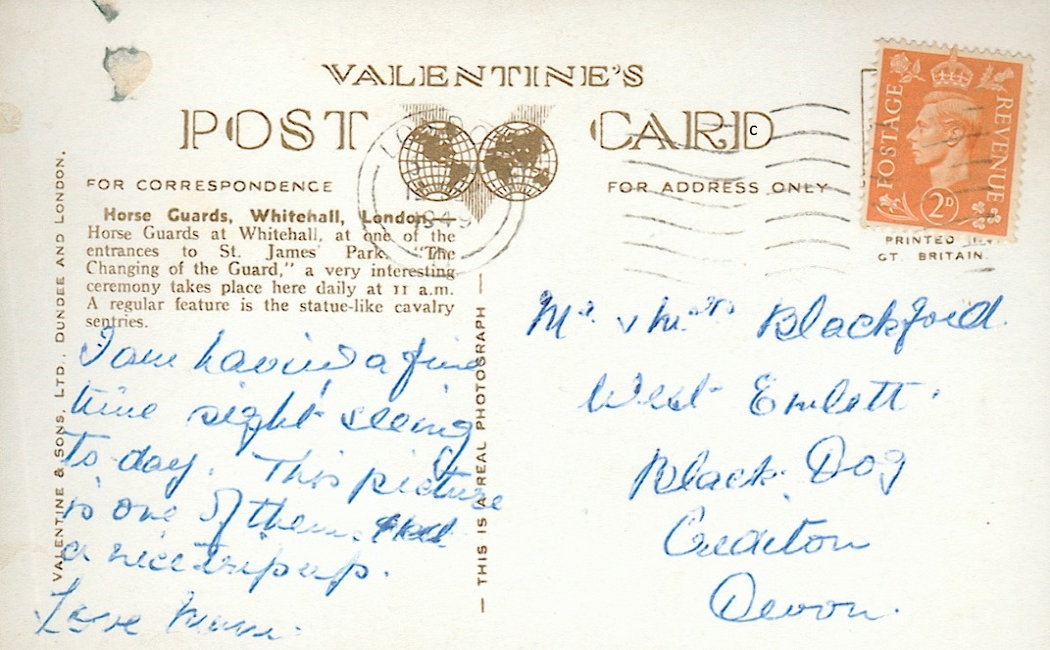 VALENTINE'S
POST CARD
c
FOR CORRESPONDENCE
FOR ADDRESS ONLY
POSTAGE
REVENUE
2D
PRINTED IN
GT. BRITAIN.
LONDON
1949
Horse Guards, Whitehall, London—
Horse Guards at Whitehall, at one of the
entrances to St. James' Park. "The
Changing of the Guard," a very interesting
ceremony takes place here daily at 11 a.m.
A regular feature is the statue-like cavalry
sentries.
I am having a fine
time sight seeing
to-day. This picture
is one of them. Had
a nice trip up.
Love Mum.
VALENTINE & SONS, LTD., DUNDEE AND LONDON.
— THIS IS A REAL PHOTOGRAPH —
Mr. & Mrs Blackford
West Emlett.
Black Dog
Crediton
Devon.